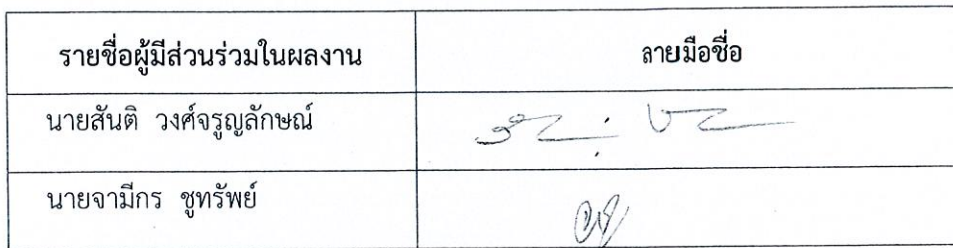 รายชื่อผู้มีส่วนร่วมในผลงาน
ลายมือชื่อ
นายสันติ วงศ์จรูญลักษณ์
นายจามีกร ชูทรัพย์